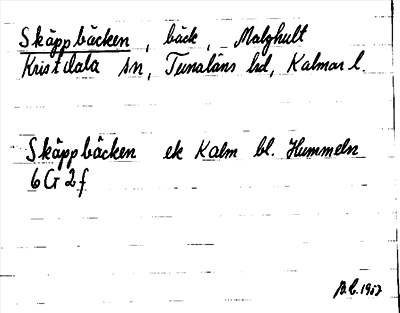 Skäppbäcken, bäck, Malghult
Kristdala sn, Tunaläns hd, Kalmar l.
Skäppbäcken ek Kalm bl. Hummeln
6G2f
B.C. 1957